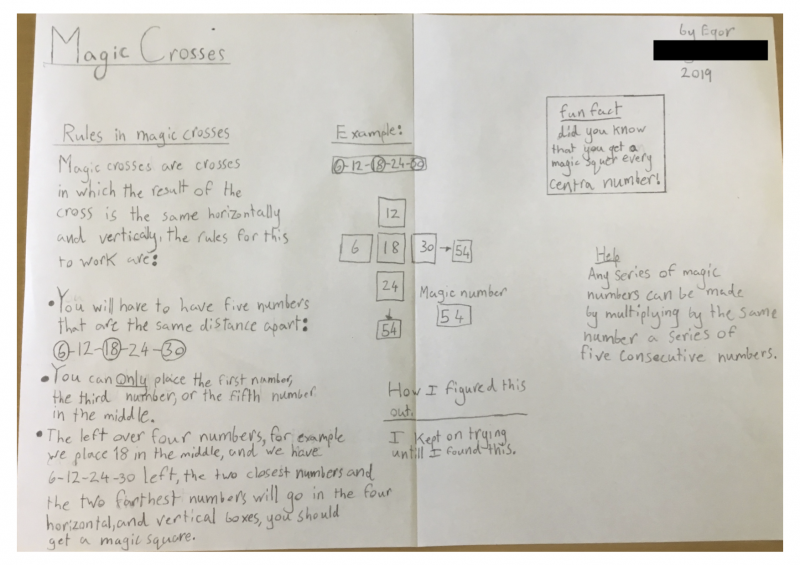 Magic Crosses
by Egor
2019
Rules in magic crosses
Magic crosses are crosses
in which the result of the
cross is the same horizontally
and verticaly, the rules for this
to work are:
• You will have to have five numbers
that are the same distance apart:
6-12-18-24-30
• You can Only place the first number,
the third number, or the fifth number
in the middle.
• The left over four numbers, for example
we place 18 in the middle, and we have
6-12-24-30 left, the two closest numbers and
the two farthest numbers will go in the four
horizontal, and vertical boxes, you should
get a magic square.
Example:
6-12-18-24-30
12
6 18 30 → 54
24
↓
54
Magic number
54
How I figured this
out.
I kept on trying
untill I found this.
fun fact
did you know
that you get a
magic squer every
centra number!
Help
Any series of magic
numbers can be made
by multiplying by the same
number a series of
five consecutive numbers.